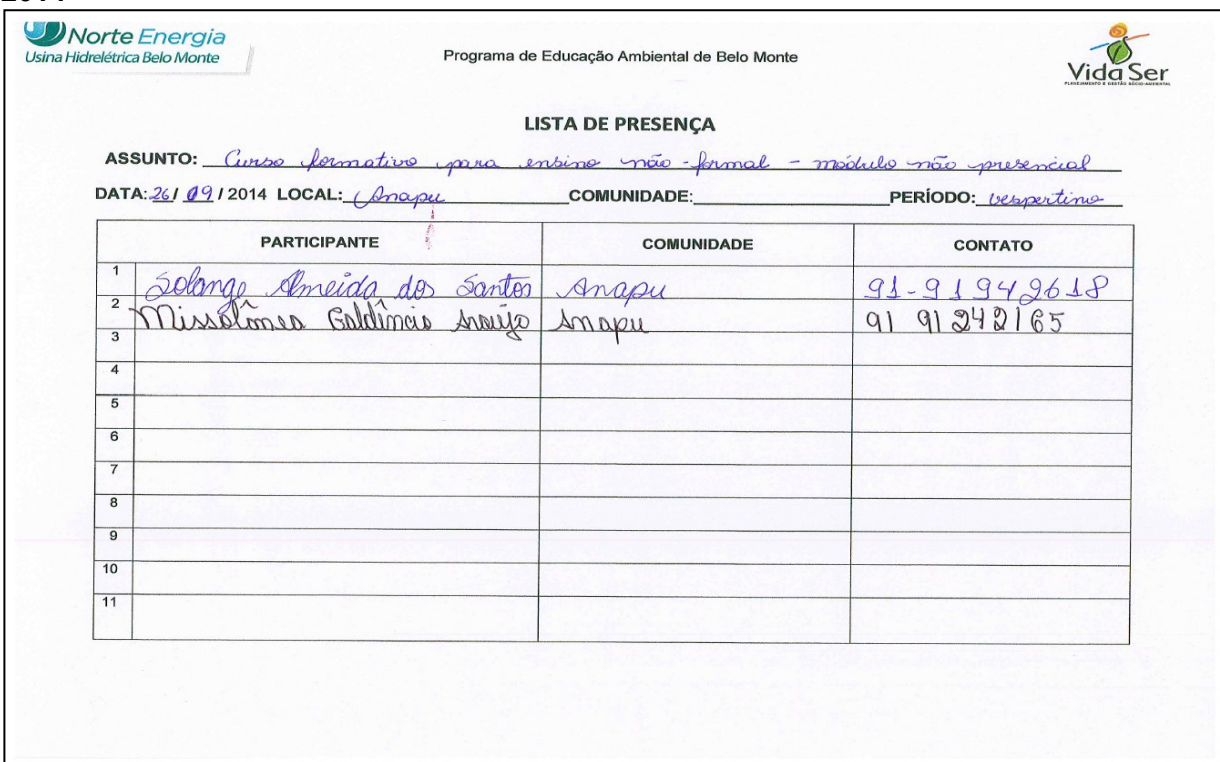 Norte Energia
Usina Hidrelétrica Belo Monte
Programa de Educação Ambiental de Belo Monte
Vida Ser
PLANEJAMENTO E GESTÃO SÓCIO-AMBIENTAL
LISTA DE PRESENÇA
ASSUNTO: Curso formativo para ensino não-formal - módulo não presencial
DATA: 26/ 09 / 2014 LOCAL: Anapu COMUNIDADE: PERÍODO: vespertino
PARTICIPANTE COMUNIDADE CONTATO
1 Solange Almeida dos Santos Anapu 91-91942618
2 Galdincio Araújo Anapu 91 91242165
3
4
5
6
7
8
9
10
11